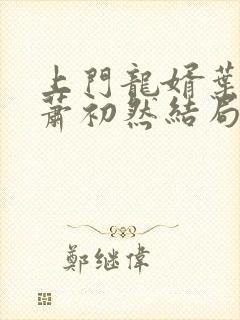 上門龍婿葉
蕭初然結局
鄭继偉